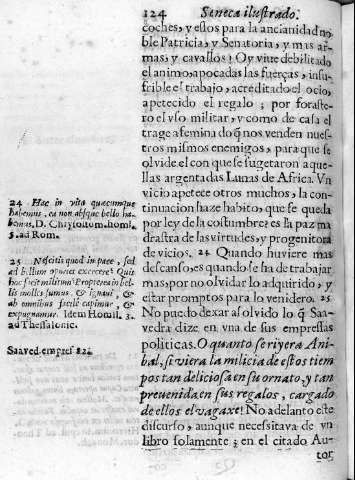 124 Seneca ilustrado.
coches, y estos para la ancianidad no
ble Patricia, y Senatoria, y mas ar-
mas, y cavallos! Oy vive debilitado
el animo, apocadas las fuerças, insu-
frible el trabajo, acreditado el ocio,
apetecido el regalo; por foraste-
ro el vso militar, y como de casa el
trage afeminado q̃ nos venden nues-
tros mismos enemigos, para que se
olvide el con que se sugetaron aque-
llas argentadas Lunas de Africa. Vn
vicio apetece otros muchos, la con-
tinuacion haze habito, que se queda
por ley de la costumbre: es la paz ma
drastra de las virtudes, y progenitora
de vicios. 24 Quando huviere mas
descanso, es quando se ha de trabajar
mas, por no olvidar lo adquirido, y
estar promptos para lo venidero. 25
No puedo dexar a solvido lo q̃ Saa-
vedra dize en vna de sus empressas
politicas. O quanto se riyera Ani-
bal, si viera la milicia de estos tiem
pos tan deliciosa en su ornato, y tan
prevenida en sus regalos, cargado
de ellos el vagaxe! No adelanto este
discurso, aunque necessitava de vn
libro solamente; en el citado Au-
tor
24 Hac in vita quacumque
habemus, ea non absque bello ha-
bemus, D. Chrysostom. homi.
5. ad Rom.
25 Nescis quod in pace, sed
ad bellum oportet exercere? Quis
hoc fecit militum? Propterea in bel-
lis molles sumus & ignavi, &
ab omnibus facile capimur, &
expugnamur. Idem Homil. 3.
ad Thessalonic.
Saaved. empres 82.